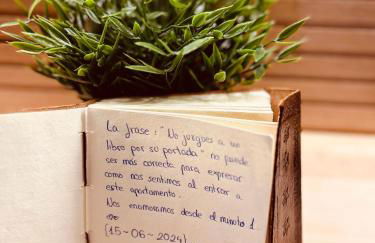 La frase: "No juzgues a un
libro por su portada" no puede
ser más correcta para expresar
como nos sentimos al entrar a
este apartamento.
Nos enamoramos desde el minuto 1.
(15-06-2024)